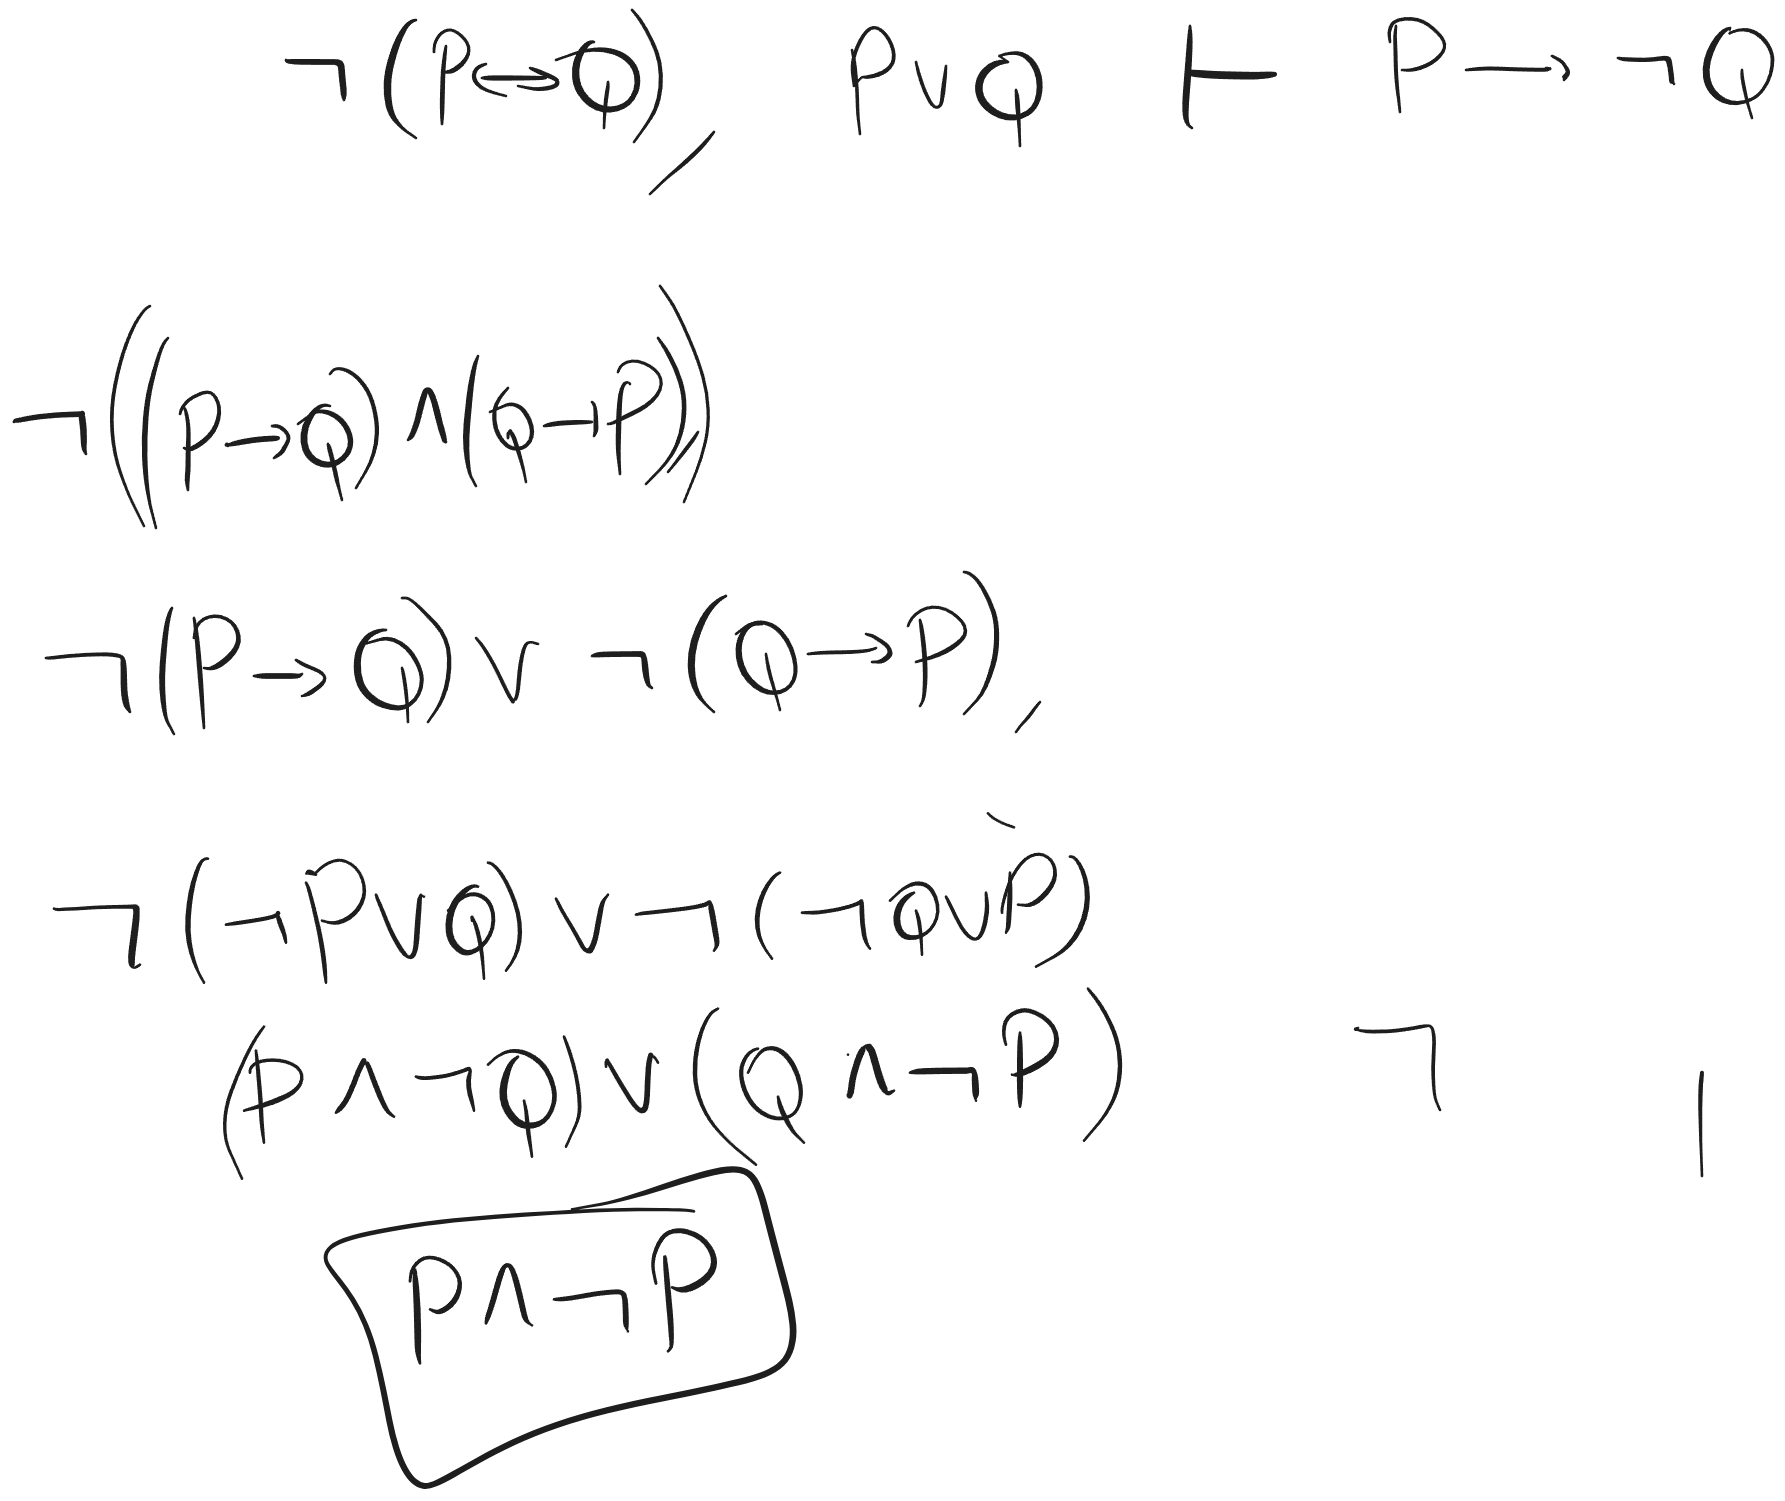 ¬(P↔Q), P∨Q ⊢ P→¬Q
¬((P→Q)∧(Q→P)),
¬(P→Q)∨¬(Q→P),
¬(¬P∨Q)∨¬(¬Q∨P)
(P∧¬Q)∨(Q∧¬P) ¬ |
P∧¬P